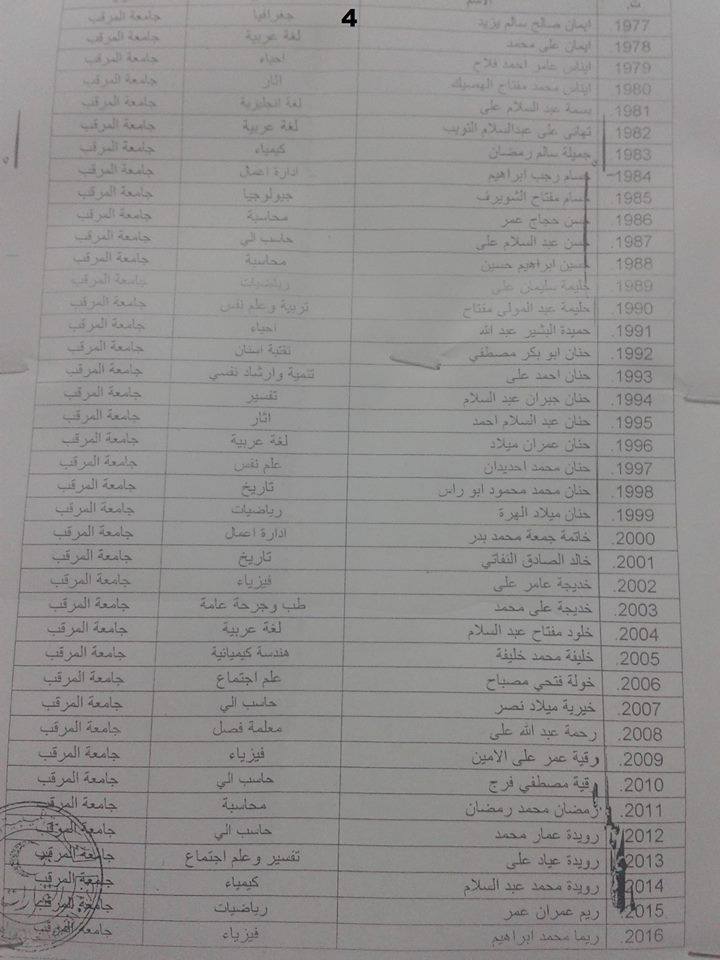 4
ت. الاسم
1977. ايمان صالح سالم يزيد جغرافيا جامعة المرقب
1978. ايمان على محمد لغة عربية جامعة المرقب
1979. ايناس عامر احمد فلاح احياء جامعة المرقب
1980. ايناس محمد مفتاح الهسيك اثار جامعة المرقب
1981. بسمة عبد السلام على لغة انجليزية جامعة المرقب
1982. تهاني على عبدالسلام التويب لغة عربية جامعة المرقب
1983. جميلة سالم رمضان كيمياء جامعة المرقب
1984. حسام رجب ابراهيم ادارة اعمال جامعة المرقب
1985. حسام مفتاح الشويرف جيولوجيا جامعة المرقب
1986. حسن حجاج عمر محاسبة جامعة المرقب
1987. حسن عبد السلام على حاسب الي جامعة المرقب
1988. حسين ابراهيم حسين محاسبة جامعة المرقب
1989. حليمة سليمان على رياضيات جامعة المرقب
1990. حليمة عبد المولى مفتاح تربية وعلم نفس جامعة المرقب
1991. حميدة البشير عبد الله احياء جامعة المرقب
1992. حنان ابو بكر مصطفي تقنية اسنان جامعة المرقب
1993. حنان احمد على تنمية وارشاد نفسي جامعة المرقب
1994. حنان جبران عبد السلام تفسير جامعة المرقب
1995. حنان عبد السلام احمد اثار جامعة المرقب
1996. حنان عمران ميلاد لغة عربية جامعة المرقب
1997. حنان محمد احديدان علم نفس جامعة المرقب
1998. حنان محمد محمود ابو راس تاريخ جامعة المرقب
1999. حنان ميلاد الهرة رياضيات جامعة المرقب
2000. خاتمة جمعة محمد بدر ادارة اعمال جامعة المرقب
2001. خالد الصادق النفاتي تاريخ جامعة المرقب
2002. خديجة عامر على فيزياء جامعة المرقب
2003. خديجة على محمد طب وجرحة عامة جامعة المرقب
2004. خلود مفتاح عبد السلام لغة عربية جامعة المرقب
2005. خليفة محمد خليفة هندسة كيميائية جامعة المرقب
2006. خولة فتحي مصباح علم اجتماع جامعة المرقب
2007. خيرية ميلاد نصر حاسب الي جامعة المرقب
2008. رحمة عبد الله على معلمة فصل جامعة المرقب
2009. رقية عمر على الامين فيزياء جامعة المرقب
2010. رقية مصطفي فرج حاسب الي جامعة المرقب
2011. رمضان محمد رمضان محاسبة جامعة المرقب
2012. رويدة عمار محمد حاسب الي جامعة المرقب
2013. رويدة عياد على تفسير وعلم اجتماع جامعة المرقب
2014. رويدة محمد عبد السلام كيمياء جامعة المرقب
2015. ريم عمران عمر رياضيات جامعة المرقب
2016. ريما محمد ابراهيم فيزياء جامعة المرقب